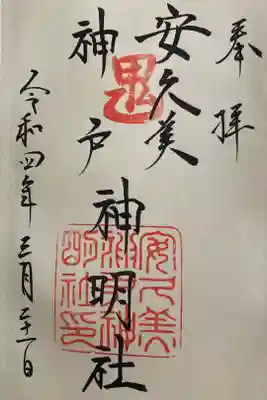 奉拝
安久美
神戸
神明社
令和四年三月二十一日
鬼
安久美神戸神明社印